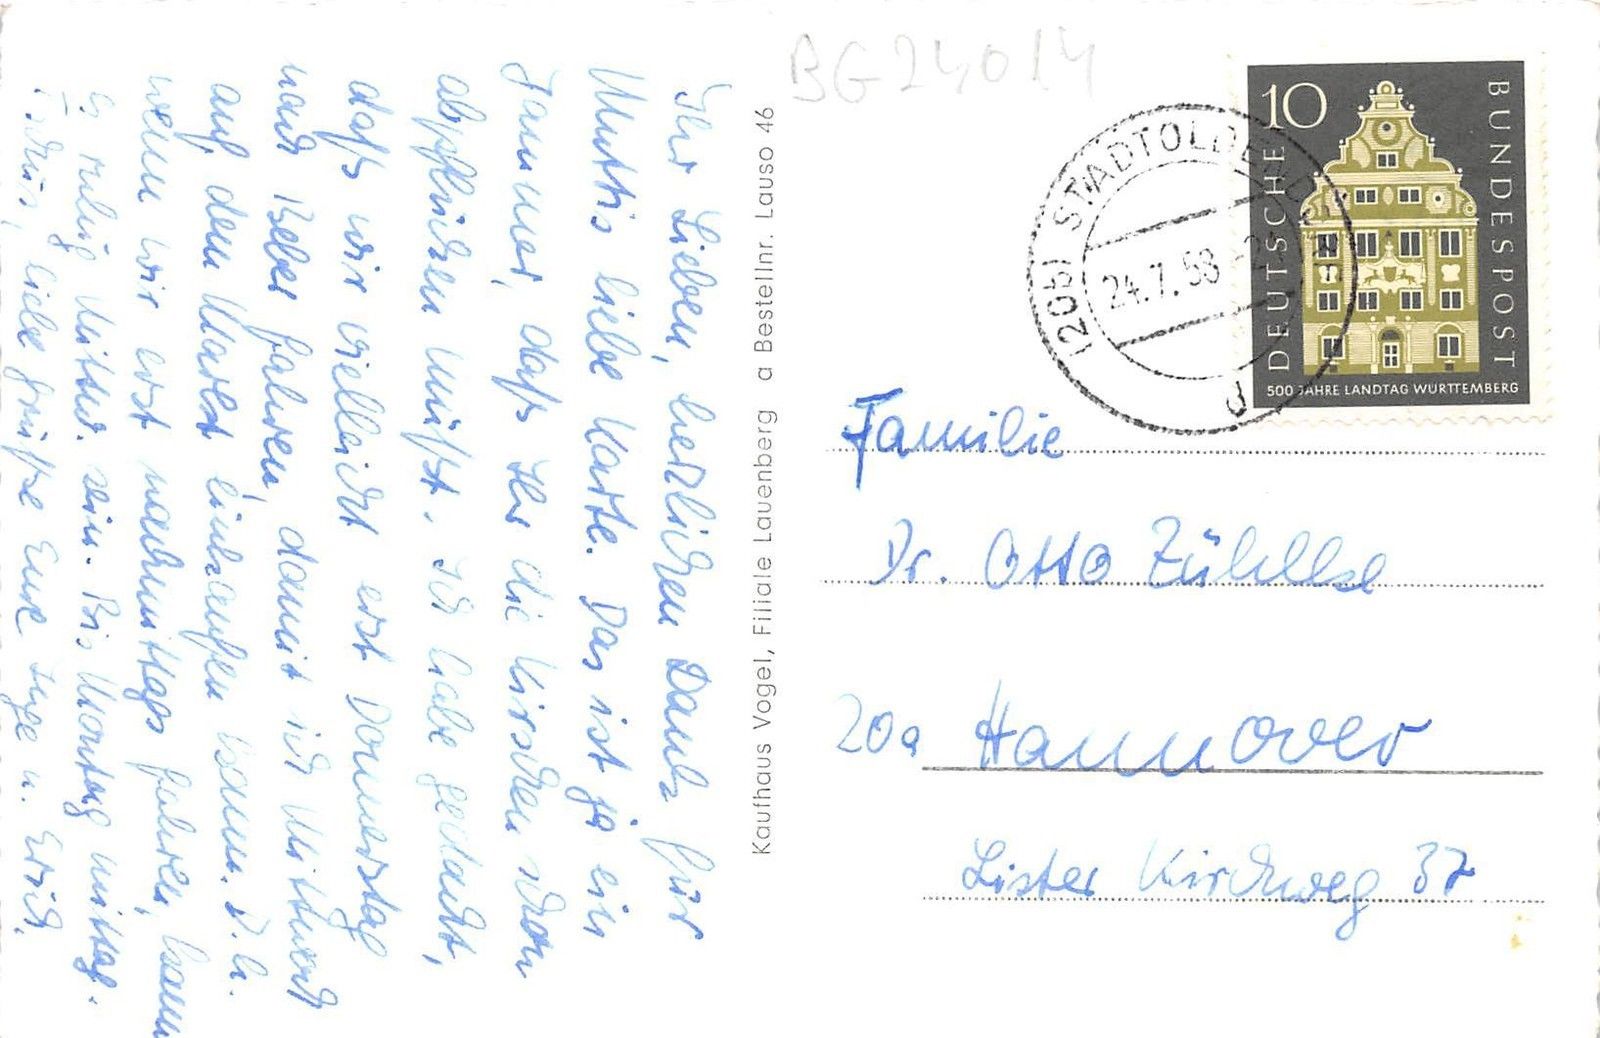 Ihr Lieben, herzlichen Dank für
Muttis liebe Karte. Das ist ja ein
Jammer, daß Ihr die Kirschen schon
abpflücken müßt. Ich habe gedacht,
daß wir vielleicht erst Donnerstag
nach Beber fahren, damit ich Mittwoch
auf dem Markt einkaufen kann. D.h.
wenn wir erst nachmittags fahren, kann
es ruhig Mittw. sein. Bis Montag mittag.
Tschüs, liebe Grüße Eure Inge u. Erich.
Kaufhaus Vogel, Filiale Lauenberg a Bestellnr. Lauso 46
BG24014
10
DEUTSCHE
BUNDESPOST
500 JAHRE LANDTAG WÜRTTEMBERG
(20b) STADTOLDENDORF
24.7.58
d
Familie
Dr. Otto Zühlke
20a Hannover
Lister Kirchweg 37